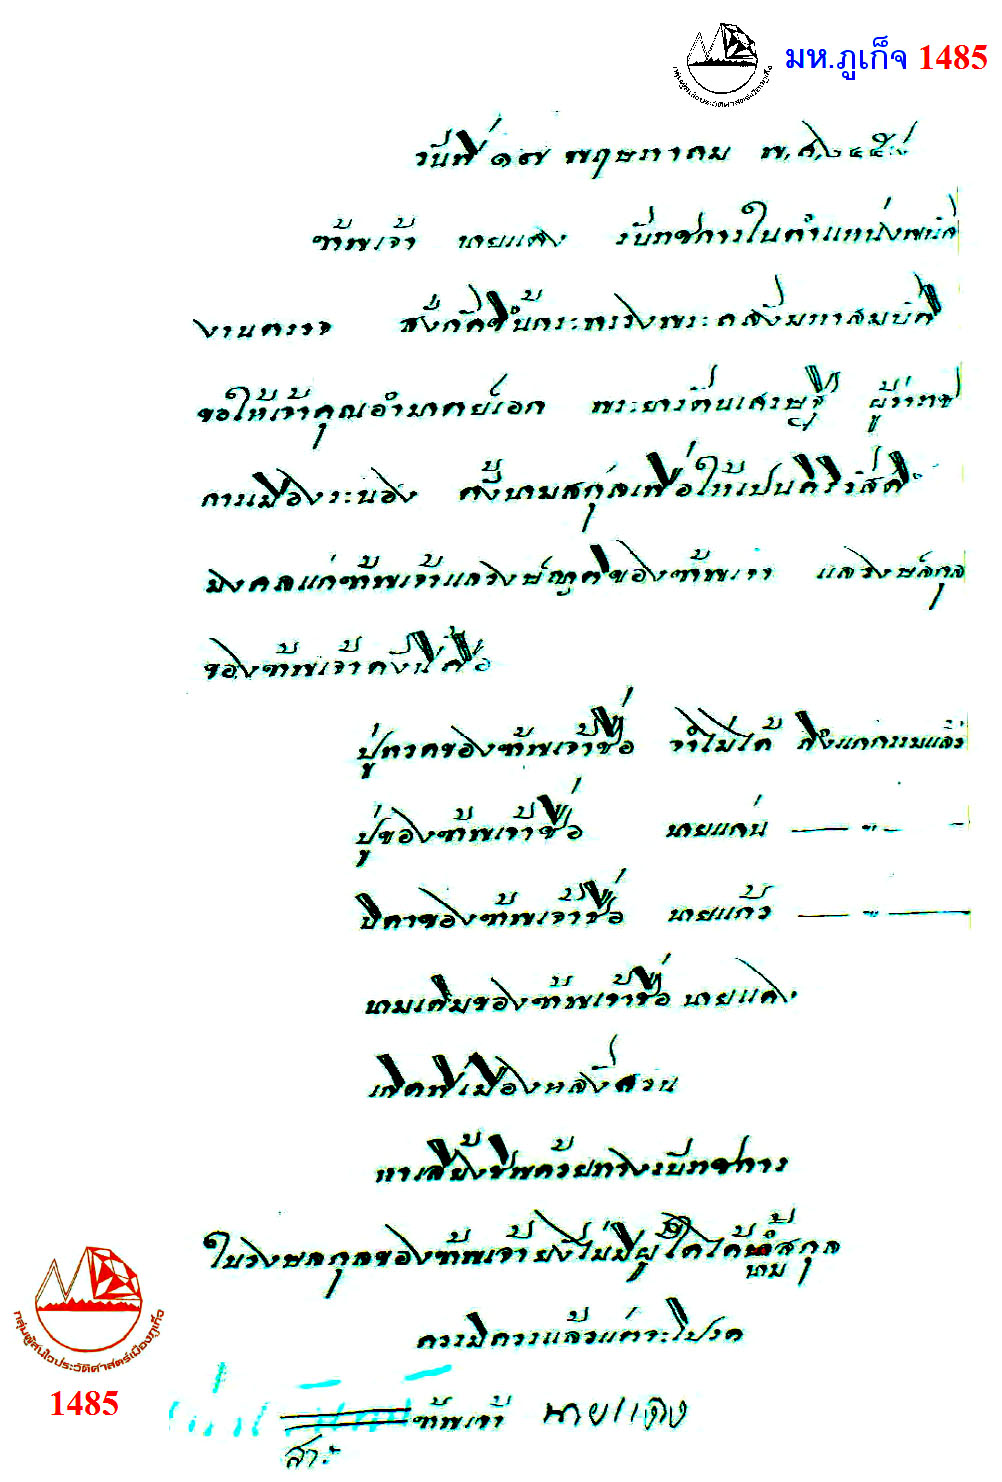 มห.ภูเก็จ 1485
วันที่ ๑๗ พฤษภาคม พ.ศ.
ข้าพเจ้า นายแดง รับราชการในตำแหน่งพนัก
งานตรวจ สังกัดขึ้นกระทรวงพระคลังมหาสมบัติ
ขอให้เจ้าคุณอำมาตย์เอก พระยารัตนเศรษฐี ผู้ว่าราช
การเมืองระนอง ตั้งนามสกุลเพื่อให้เป็นศิริวัสดิ
มงคลแก่ข้าพเจ้าแลวงษ์ญาติของข้าพเจ้า แลวงษ์สกุล
ของข้าพเจ้าดังนี้คือ
ปู่ทวดของข้าพเจ้าชื่อ จำไม่ได้ ถึงแก่กรรมแล้ว
ปู่ของข้าพเจ้าชื่อ นายแก่น — " —
บิดาของข้าพเจ้าชื่อ นายแก้ว — " —
นามเดิมของข้าพเจ้าชื่อ นายแดง
เกิดที่เมืองหลังสวน
หาเลี้ยงชีพด้วยทางรับราชการ
ในวงษสกุลของข้าพเจ้ายังไม่มีผู้ใดได้ตั้งนามสกุล
ควรมิควรแล้วแต่จะโปรด
ข้าพเจ้า นายแดง
กลุ่มผู้สนใจประวัติศาสตร์เมืองภูเก็จ
1485